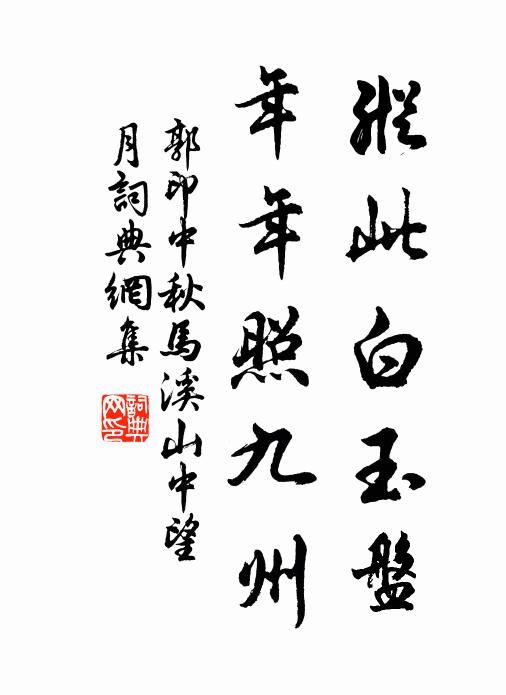 縱此白玉盤
年年照九州
郭印中秋馬溪山中望
月詞典網集
詞典
网印